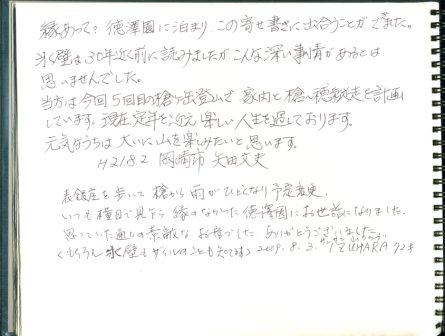 縁あって? 徳澤園に泊まり、この寄せ書きに出合うことができた。
氷壁は30年近く前に読みましたが、こんな深い事情があるとは
思いませんでした。
当方は今回5回目の槍ヶ岳登山で 家内と槍〜穂縦走を計画
しています。現在定年を迎え楽しい人生を過しております。
元気なうちは大いに山を楽しみたいと思います。
H21 8.2 岡崎市 矢田文史
表銀座を歩いて 槍から雨がひどくなり予定変更。
いつも横目で見ながら縁のなかった徳澤園にお世話になりました。
思っていた通りの素敵なお宿でした。ありがとうございました。
(もちろん氷壁もザイルのことも知ってます) 2009. 8. 3. IZUHARA 72才